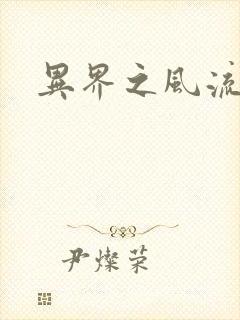 異界之風流
尹燦荣